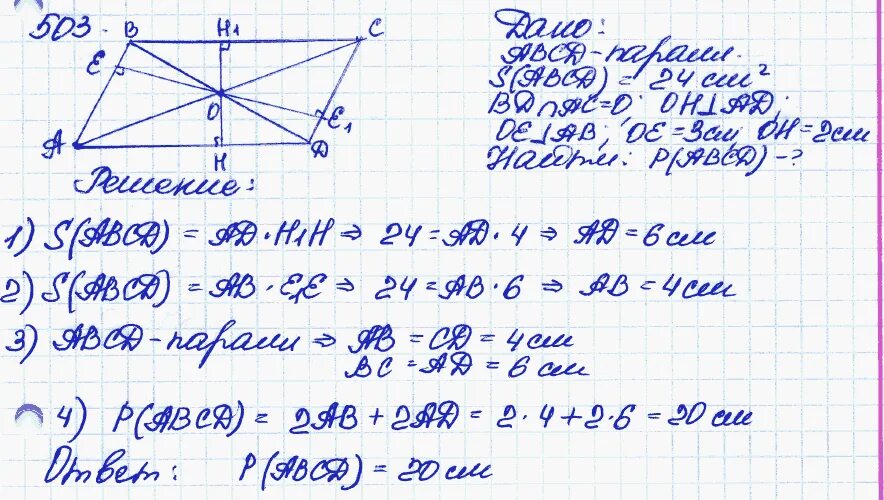 503.
B H₁ C
E
O E₁
A H D
Дано:
ABCD - парал.
S(ABCD) = 24 см²
BD∩AC=O; OH⊥AD;
OE⊥AB; OE = 3см, OH = 2см
Найти: P(ABCD) - ?
Решение:
1) S(ABCD) = AD · H₁H ⇒ 24 = AD · 4 ⇒ AD = 6 см
2) S(ABCD) = AB · E₁E ⇒ 24 = AB · 6 ⇒ AB = 4 см
3) ABCD - парал ⇒ AB = CD = 4 см
BC = AD = 6 см
4) P(ABCD) = 2AB + 2AD = 2 · 4 + 2 · 6 = 20 см
Ответ: P(ABCD) = 20 см